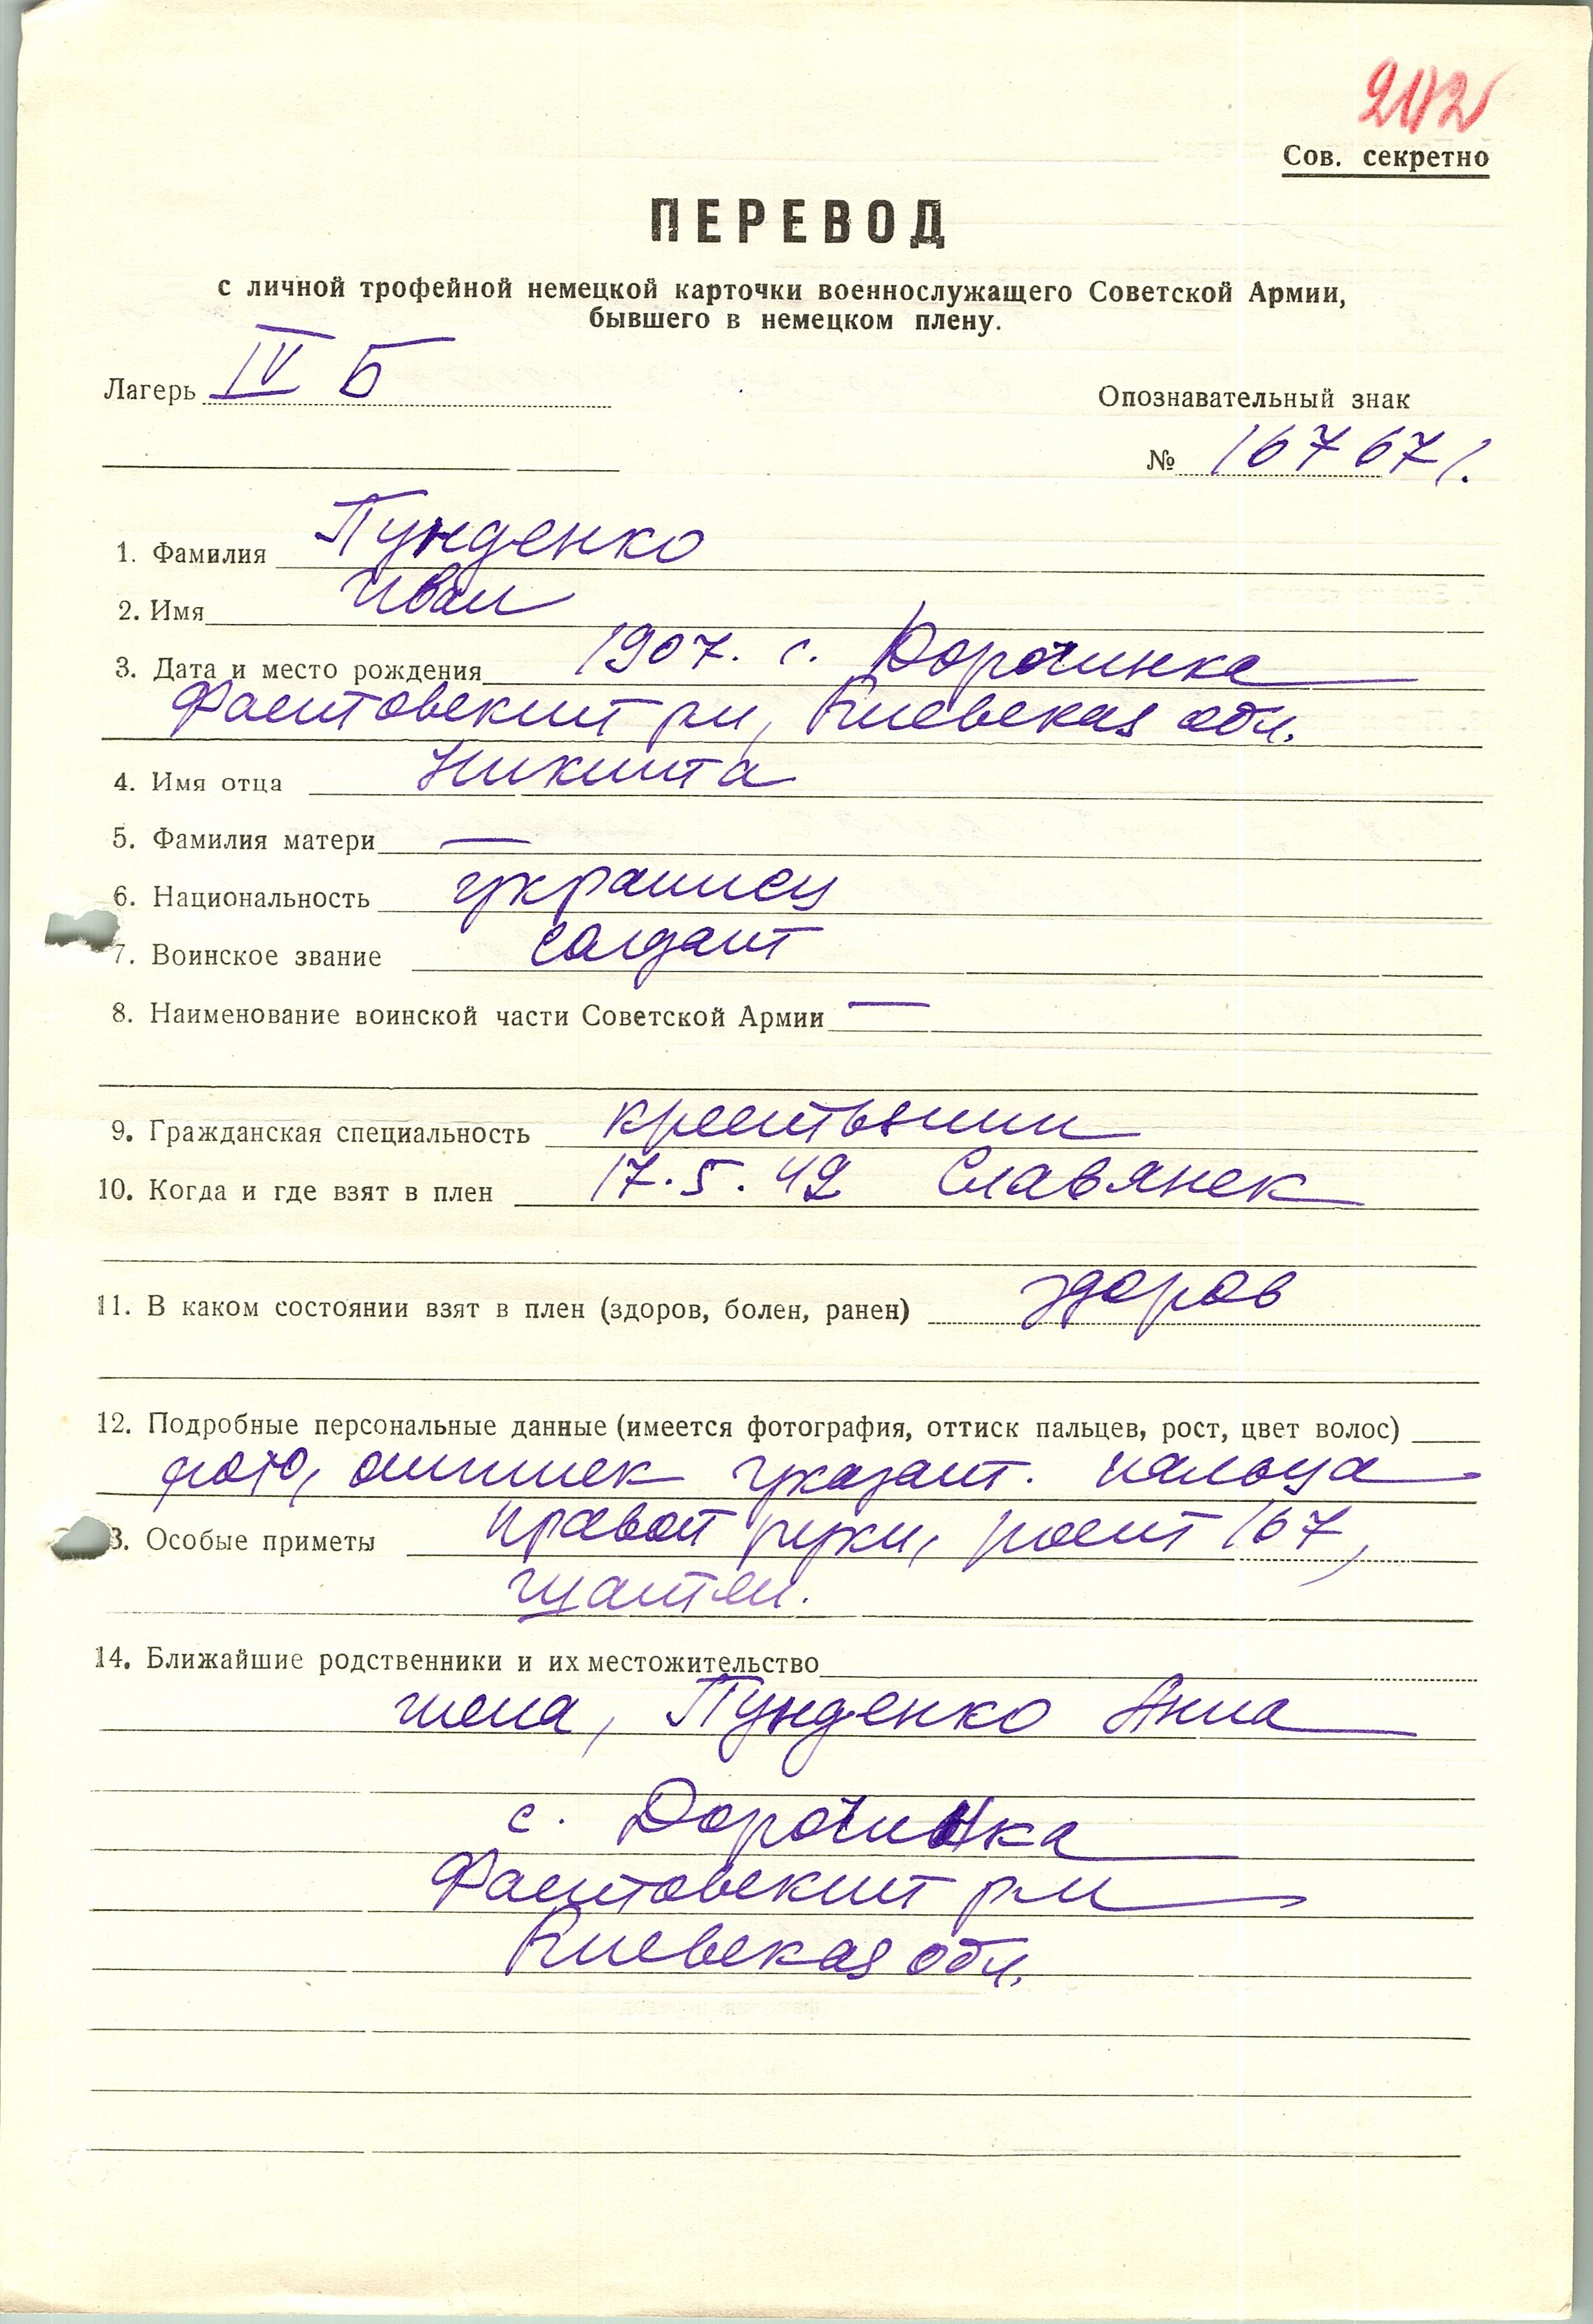 202
Сов. секретно
ПЕРЕВОД
с личной трофейной немецкой карточки военнослужащего Советской Армии,
бывшего в немецком плену.
Лагерь IV Б
Опознавательный знак
№ 167671.
1. Фамилия Пунденко
2. Имя Иван
3. Дата и место рождения 1907. с. Дорочинка
Фастовский р-н, Киевская обл.
4. Имя отца Никита
5. Фамилия матери —
6. Национальность украинец
7. Воинское звание солдат
8. Наименование воинской части Советской Армии —
9. Гражданская специальность крестьянин
10. Когда и где взят в плен 17.5.42 Славянск
11. В каком состоянии взят в плен (здоров, болен, ранен) здоров
12. Подробные персональные данные (имеется фотография, оттиск пальцев, рост, цвет волос)
фото, оттиск указат. пальца
3. Особые приметы правой руки, рост 167,
14. Ближайшие родственники и их местожительство
жена, Пунденко Анна
с. Дорочинка
Фастовский р-н
Киевская обл.